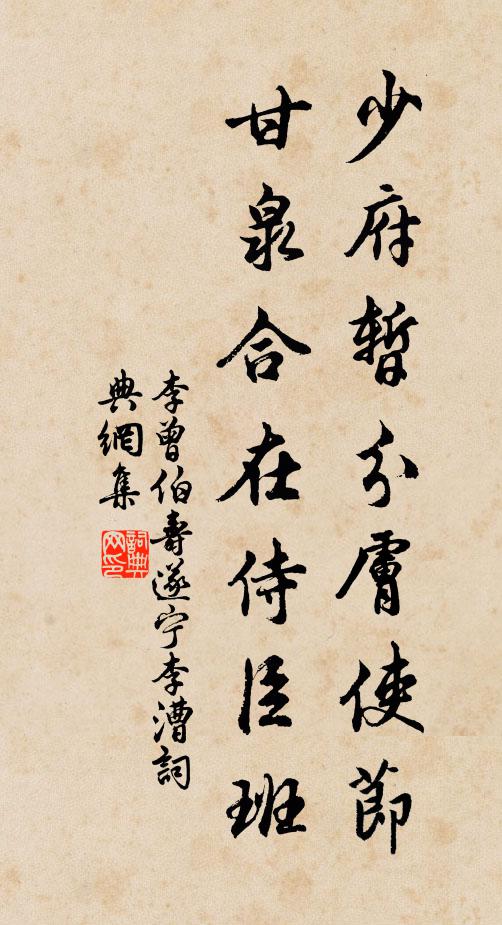 少府暫分膚使節
甘泉合在侍臣班
李曾伯壽遂宁李漕詞
典網集
詞典
网印